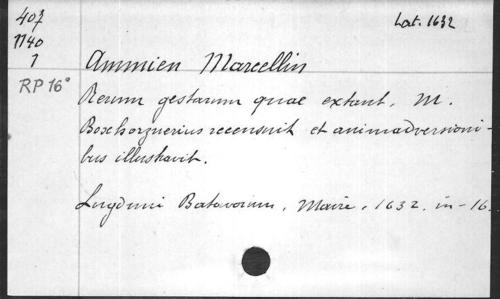 407
1740
1
RP 16°
Lat. 1632
Ammien Marcellin
Rerum gestarum quae extant, M.
Boxhornius recensuit et animadversioni-
bus illustravit.
Lugduni Batavorum, Maire, 1632. in-16.